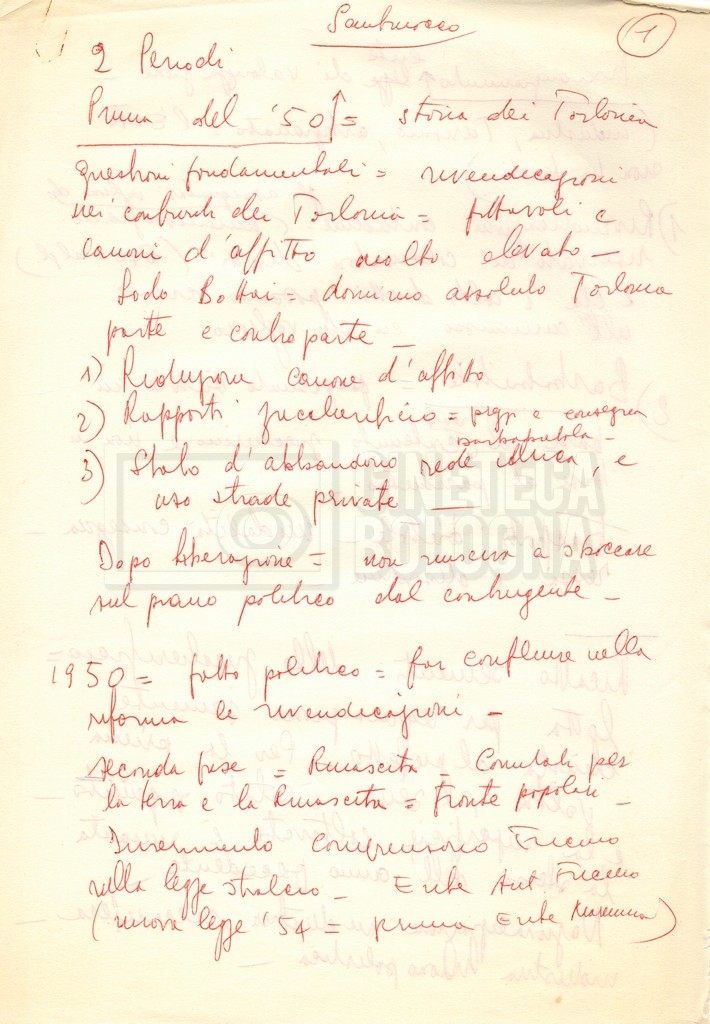 Sambucco
1
2 Periodi
Prima del '50 = storia dei Torlonia
questioni fondamentali = rivendicazioni
nei confronti dei Torlonia = fittavoli e
canoni d'affitto molto elevato —
Lodo Bottai = dominio assoluto Torlonia
parte e controparte —
1) Riduzione canone d'affitto
2) Rapporti zuccherificio = prezzi e consegna
barbabietola —
3) Stato d'abbandono rete idrica, e
uso strade private —
Dopo liberazione = non riusciva a sboccare
sul piano politico dal contingente —
1950 = fatto politico = far confluire nella
riforma le rivendicazioni —
seconda fase = Rinascita — Comitati per
la terra e la Rinascita = Fronte popolari —
Inserimento comprensorio Fucino
nella legge stralcio — Ente Aut Fucino
(nuova legge '54 = prima Ente Maremma)
CINETECA
BOLOGNA